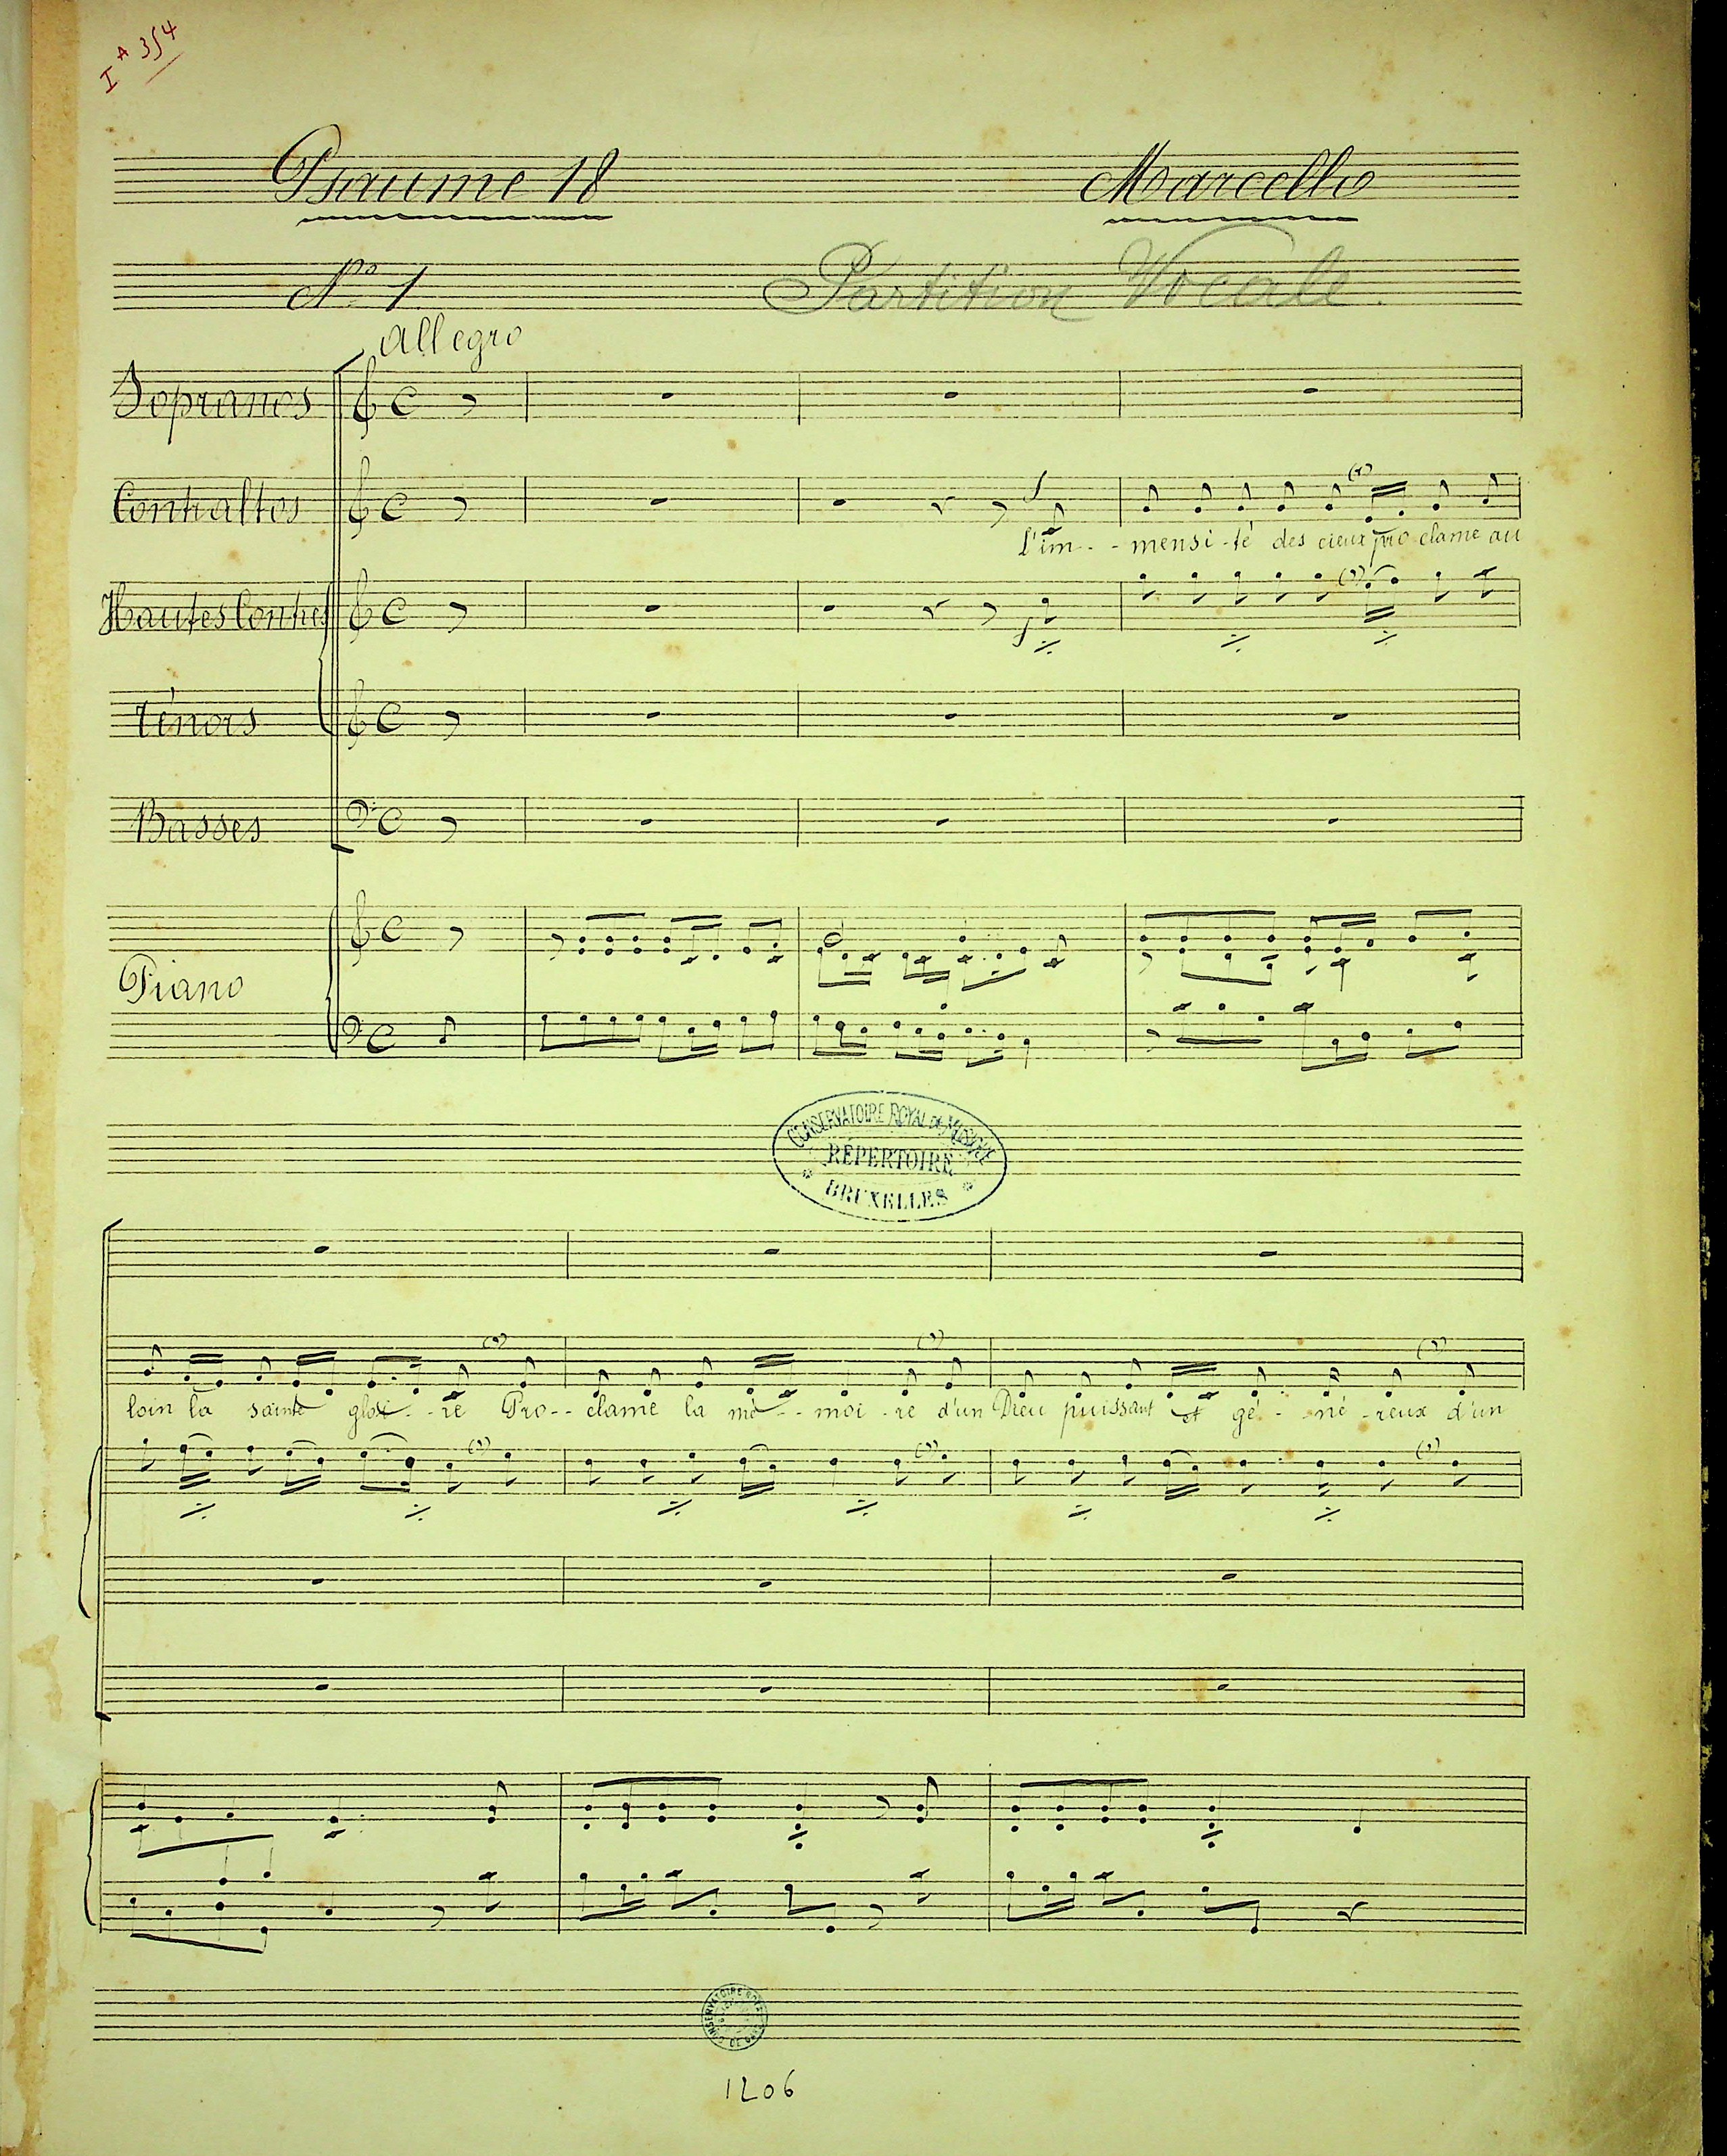 I A 354
Psaume 18 Marcello
N° 1 Partition Vocale.
Allegro
Sopranos
Contraltos
f
L'im - - mensi - té des cieux pro clame au
Hautes Contres
f
Ténors
Basses
Piano
CONSERVATOIRE ROYAL DE MUSIQUE
RÉPERTOIRE
BRUXELLES
loin la sainte gloi - - re Pro - - clame la mé - - moi - re d'un Dieu puissant et gé - - né - reux d'un
CONSERVATOIRE ROYAL
1206